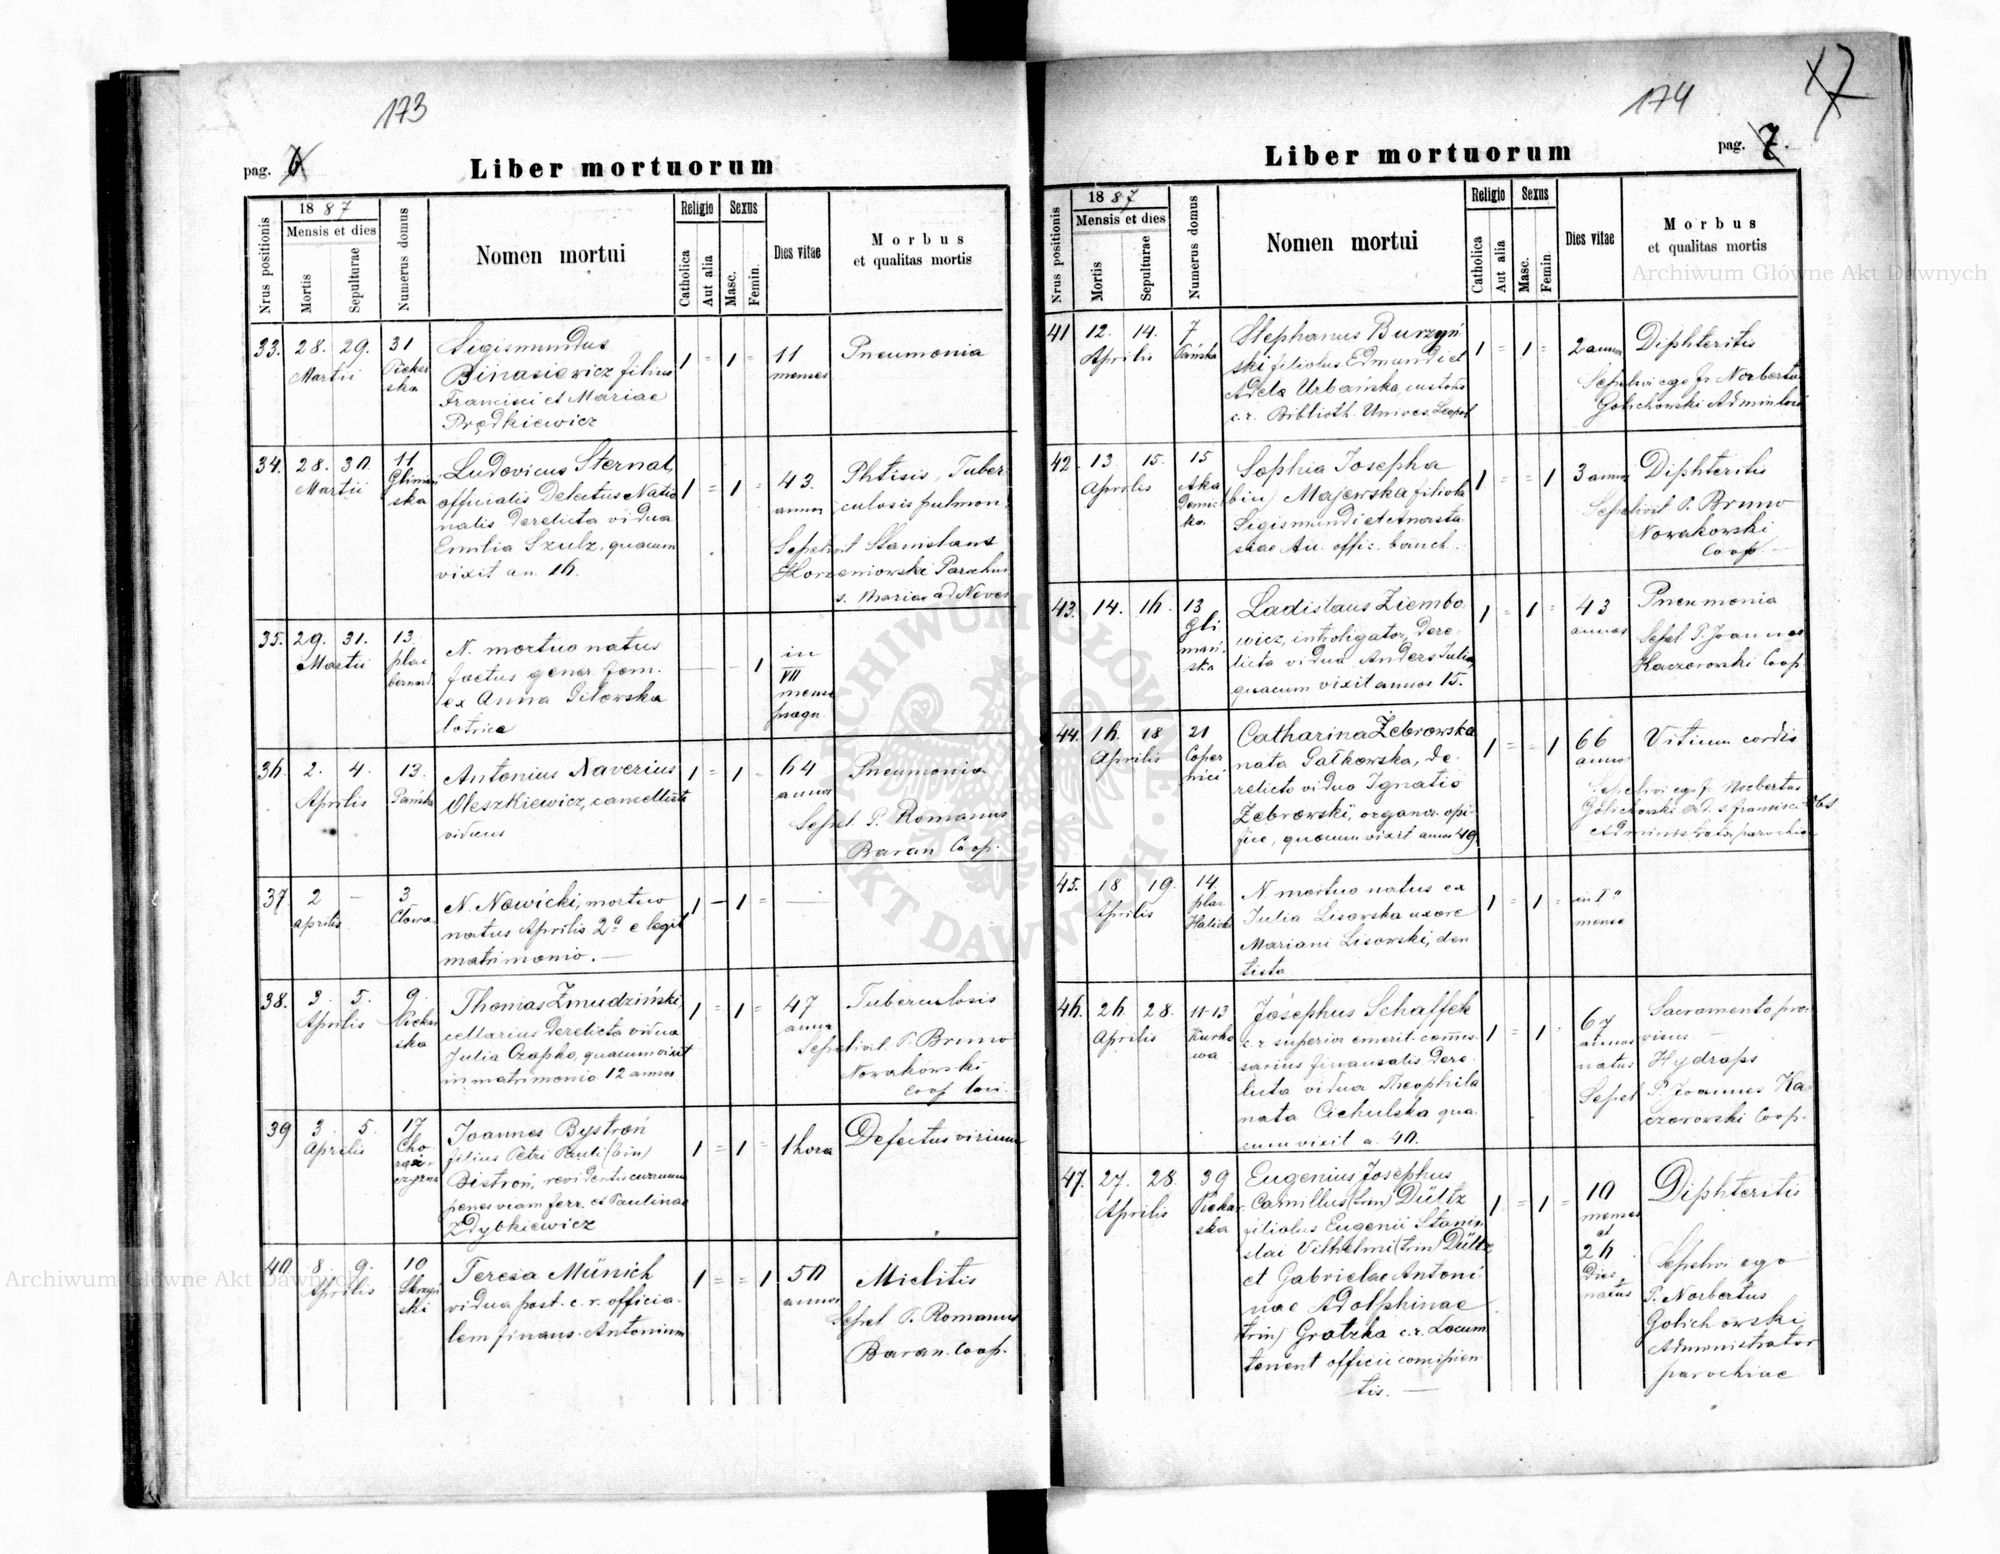 173
pag. 6
Liber mortuorum
Nrus positionis
1887
Mensis et dies
Mortis
Sepulturae
Numerus domus
Nomen mortui
Religio
Catholica
Aut alia
Sexus
Masc.
Femin.
Dies vitae
Morbus
et qualitas mortis
33. 28. 29. 31 Sigismundus 1 = 1 = 11 Pneumonia
Martii Piekar
ska Binasiewicz filius menses
Francisci et Mariae
Prędkiewicz
34. 28. 30. 11 Ludovicus Sternal, 1 = 1 = 43. Phtisis, Tuber
Martii Glinian
ska officialis Delectus Natio annor culosis pulmon.
nalis derelicta vidua
Emilia Szulz, quacum Sepelivit Stanislaus
vixit an. 16. Korzeniowski Parochus
s. Mariae ad Nives
35. 29. 31. 13 N. mortuo natus — — 1 in
Martii plac
bernard. foetus gener. fem. VII
ex Anna Gilowska mense
lotrice praegn.
36. 2. 4. 13. Antonius Xaverius 1 = 1 = 64 Pneumonia
Aprilis Pańska Oleszkiewicz, cancellista annor
viduus Sepel P. Romanus
Baran Coop.
37 2 — 3 N. Nowicki, mortuo 1 — 1 = —
Aprilis Cłowa natus Aprilis 2a e legit
matrimonio. —
38. 3. 5. 9. Thomas Żmudziński, 1 = 1 = 47 Tuberculosis
Aprilis Piekar
ska cellarius derelicta vidua annor
Julia Czapko, quacum vixit Sepelivit P. Bruno
in matrimonio 12 annos Nowakowski
Coop loci.
39 3. 5. 17 Joannes Bystroń 1 = 1 = 1 hora Defectus virium
Aprilis Cho
filius Petri Pauli (bin)
Bistroń, revidentis curruum
penes viam ferr. et Paulinae
Zdybkiewicz
40 8. 9. 10 Teresa Münich 1 = = 1 50 Mielitis
Aprilis
ski vidua post. c. r. officia- annor
lem finans. Antonium Sepel P. Romanus
Baran. Coop.
174
17
pag. 7.
Liber mortuorum
Nrus positionis
1887
Mensis et dies
Mortis
Sepulturae
Numerus domus
Nomen mortui
Religio
Catholica
Aut alia
Sexus
Masc.
Femin.
Dies vitae
Morbus
et qualitas mortis
41 12. 14. 7 Stephanus Burzyń 1 = 1 = 2 annor Diphteritis
Aprilis Pańska ski filiolus Edmundi et
Adela Urbańska, custodis Sepelivi ego fr Norbertus
c. r. Biblioth. Univers. Leopol Golichowski Admin loci
42. 13. 15. 15 Sophia Josepha 1 = = 1 3 annor Diphteritis
Aprilis Aka
demic
ka (bin) Majewska filiola Sepelivit P. Bruno
Sigismundi et Anasta Nowakowski
siae Au. offic. banch. Coop —
43. 14. 16. 13 Ladislaus Ziembo 1 = 1 = 43 Pneumonia
Gli
niań
ska wicz, introligator, dere- annos
licta vidua Anders Julia, Sepel P. Joannes
quacum vixit annos 15. Kaczorowski Coop.
44. 16. 18 21 Catharina Żebrowska 1 = = 1 66 Vitium cordis
Aprilis Coper
nici nata Gałkowska, de- annos
relicto viduo Ignatio Sepelivi ego fr. Norbertus
Żebrowski, organor. opi- Golichowski Ord. s. Francisci Obs
fice, quocum vixit annos 49. Administrator parochiae
45. 18 19. 14. N. mortuo natus ex 1 = 1 = in Io
Aprilis plac
Halicki Julia Lisowska uxore mense
Mariani Lisowski, den
tista
46. 26. 28. 11-13 Josephus Schaffek 1 = 1 = 67 Sacramento pro
Aprilis Kurko
wa c. r. superior emerit. commis- annos visus —
sarius finansialis dere- natus Hydrops
licta vidua Theophila Sepel P. Joannes Ka
nata Cichulska qua- czorowski Coop.
cum vixit a. 40.
47. 27. 28. 39 Eugenius Josephus 1 = 1 = 10 Diphteritis
Aprilis Piekar
ska Camillus (trin) Dültz menses
filiolus Eugenii Stanis et
slai Vilhelmi (trin) Dültz 26 Sepelivi ego
et Gabrielae Antoni dies P. Norbertus
nae Adolphinae natus Golichowski
(trin) Gratzka c. r. Locum Administrator
tenent officii comipien parochiae
tis. —
Archiwum Główne Akt Dawnych
ARCHIWUM GŁÓWNE AKT DAWNYCH
Archiwum Główne Akt Dawnych